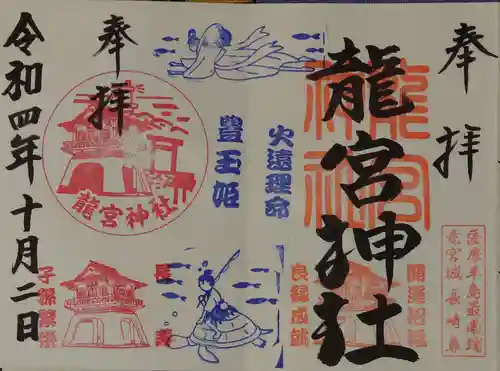 奉拝
龍宮神社
薩摩半島最南端
竜宮城 長崎鼻
開運招福
良縁成就
火遠理命
豊玉姫
奉拝
龍宮神社
子孫繁栄
令和四年十月二日